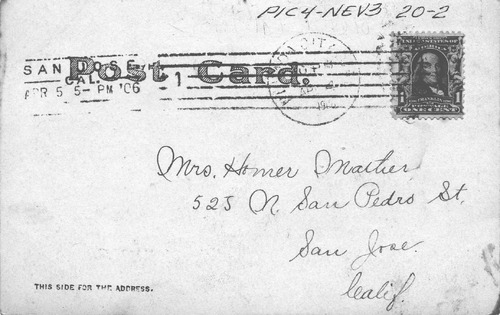 PIC4-NEV3 20-2
Post Card.
SAN JOSE
CAL.
APR 5 5-PM '06
1
Mrs. Homer Mather
525 N. San Pedro St.
San Jose.
Calif.
THIS SIDE FOR THE ADDRESS.